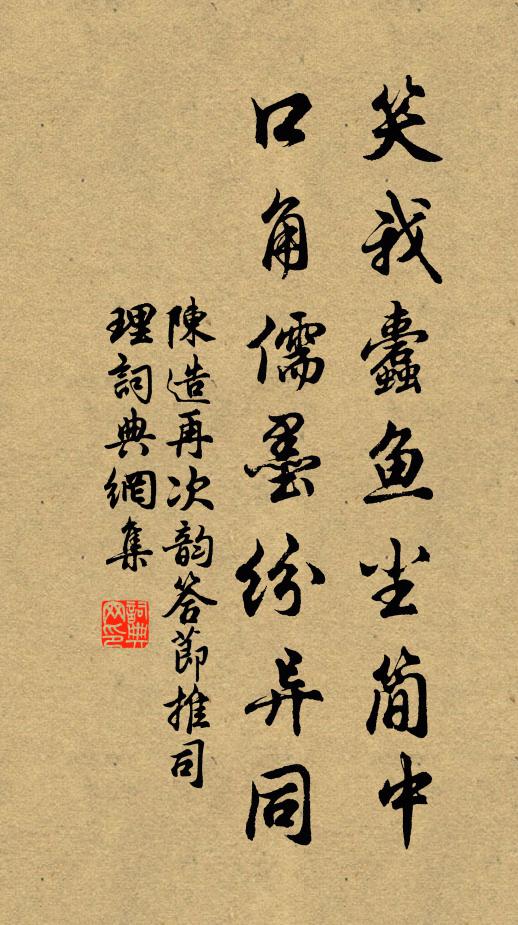 笑我蠹鱼坐简中
口角儒墨纷异同
陳造再次韵答節推司
理詞典網集
詞典网印